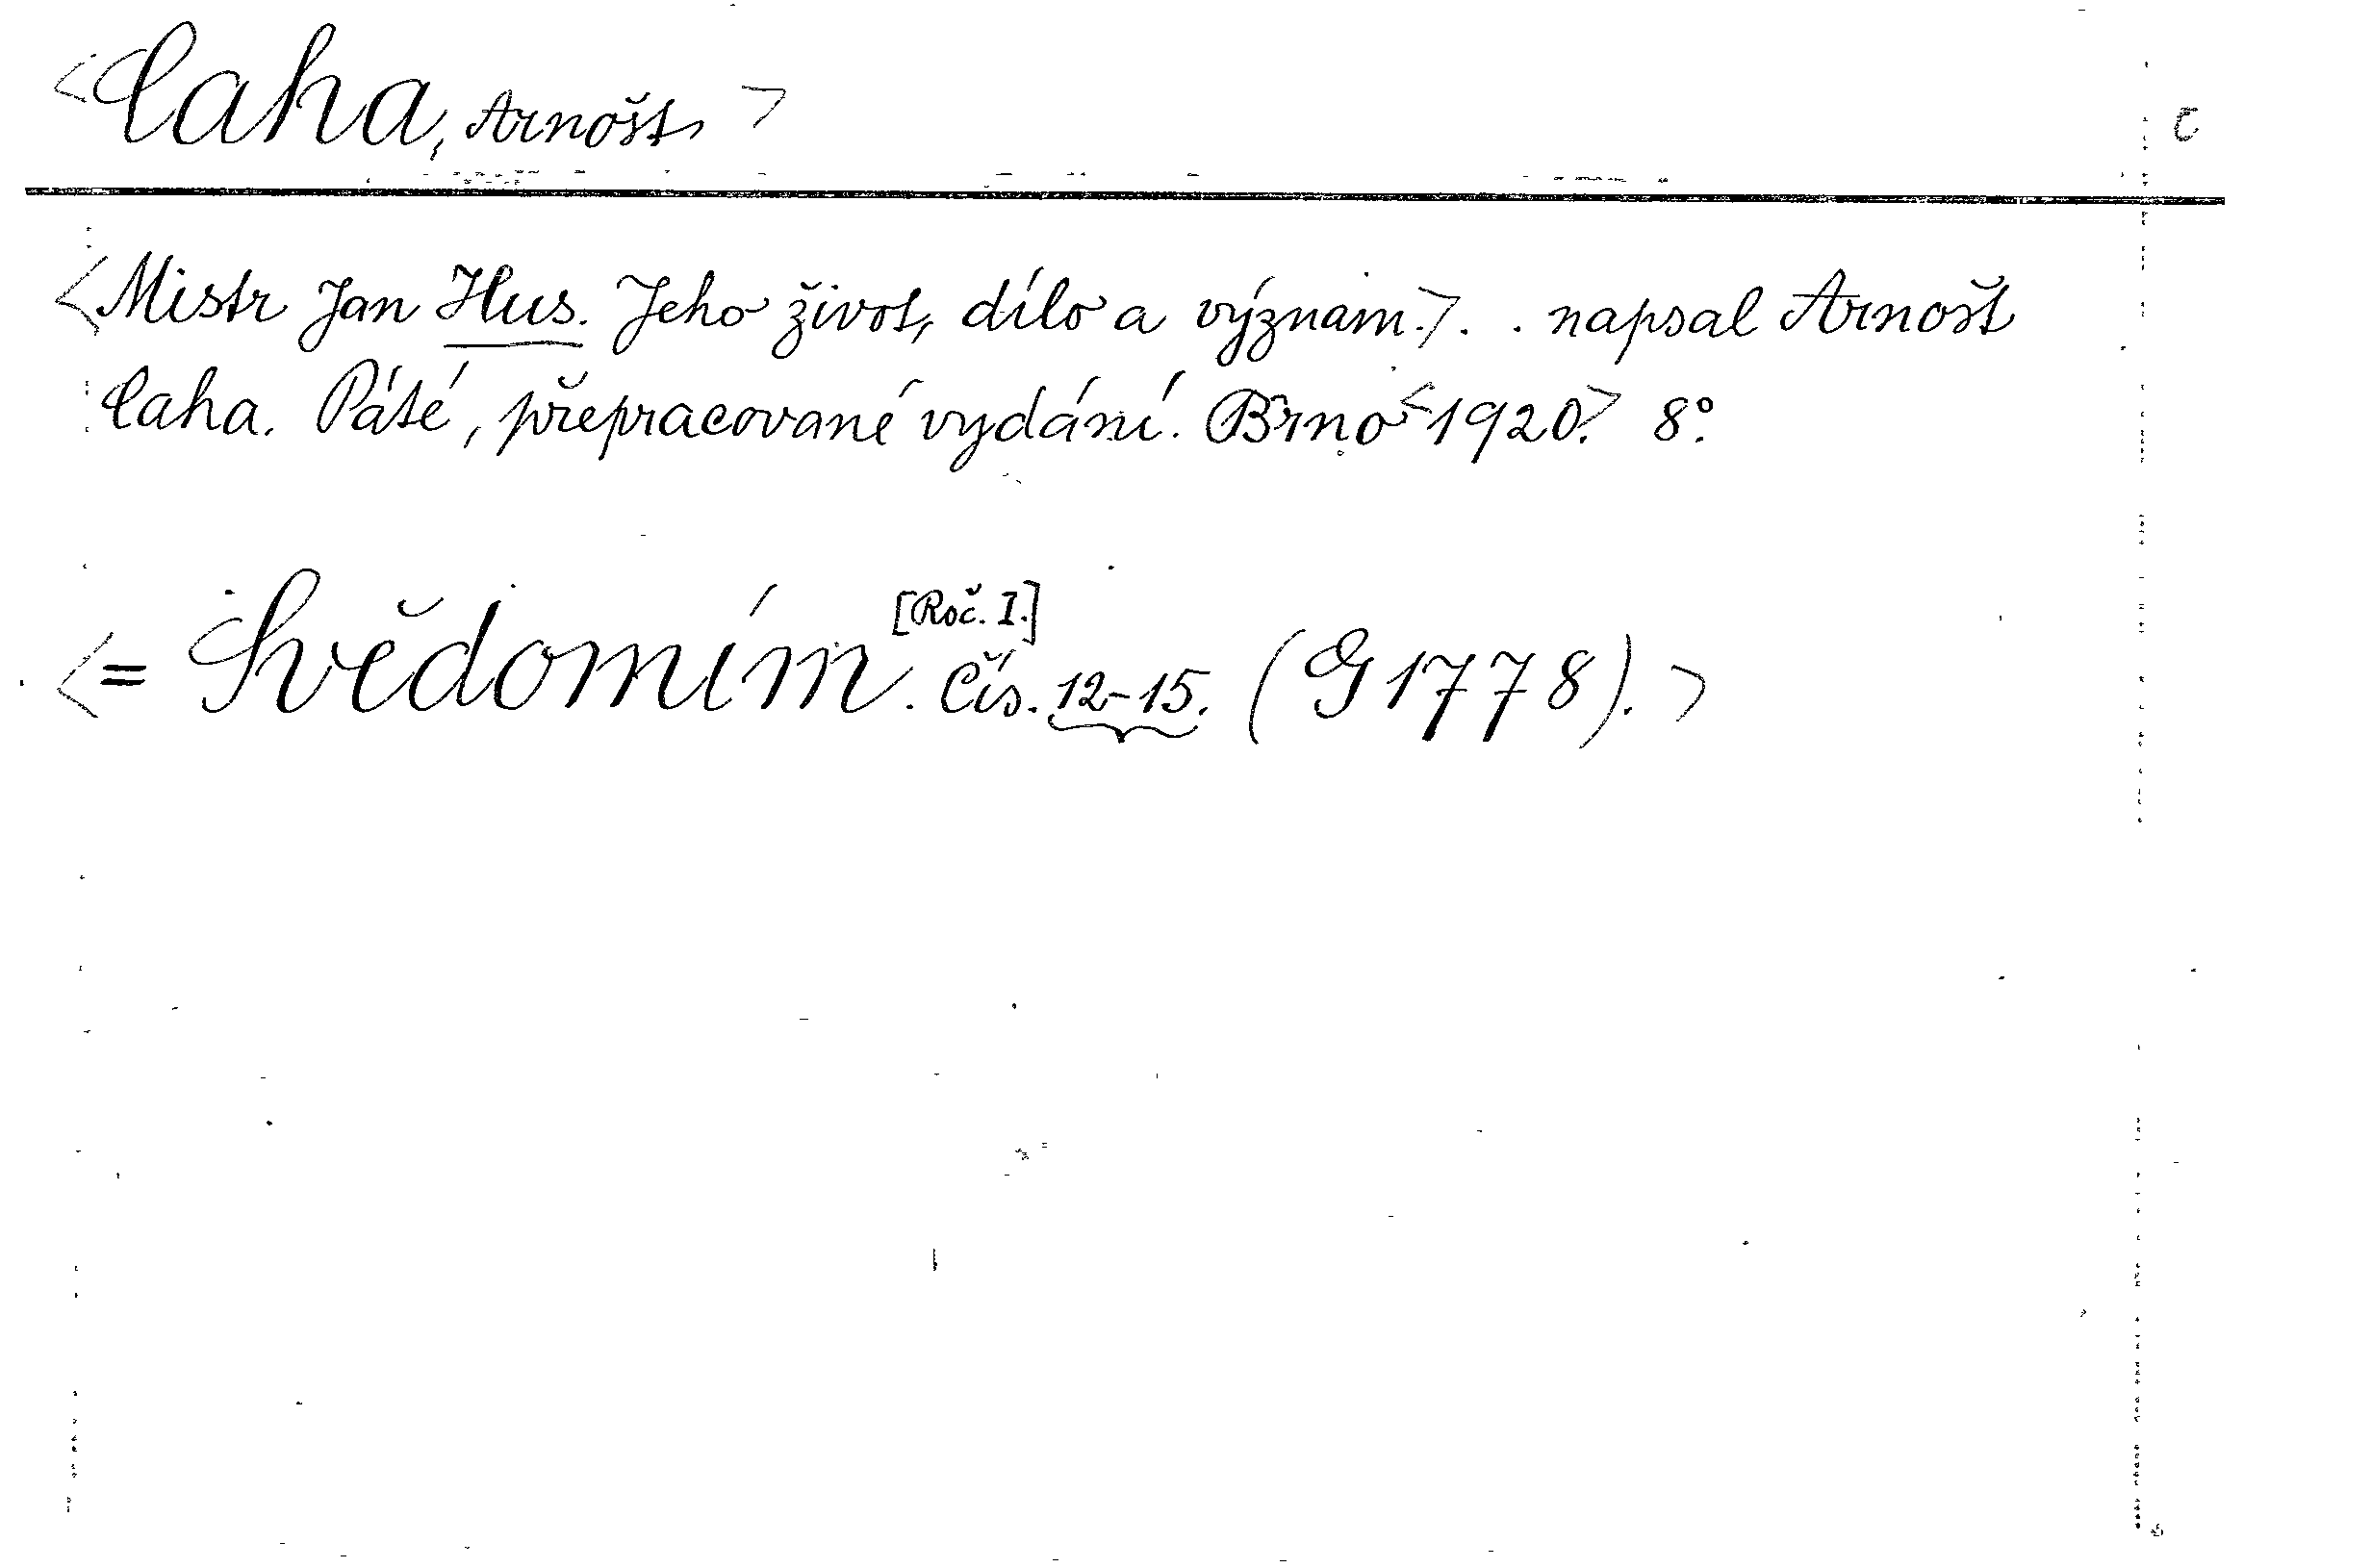 <Caha, Arnošt>
č
<Mistr Jan Hus. Jeho život, dílo a význam.>. . napsal Arnošt
Caha. Páté, přepracované vydání. Brno <1920.> 8°.
[Roč. I.]
<= Svědomím. Čís. 12-15. (G 1778).>